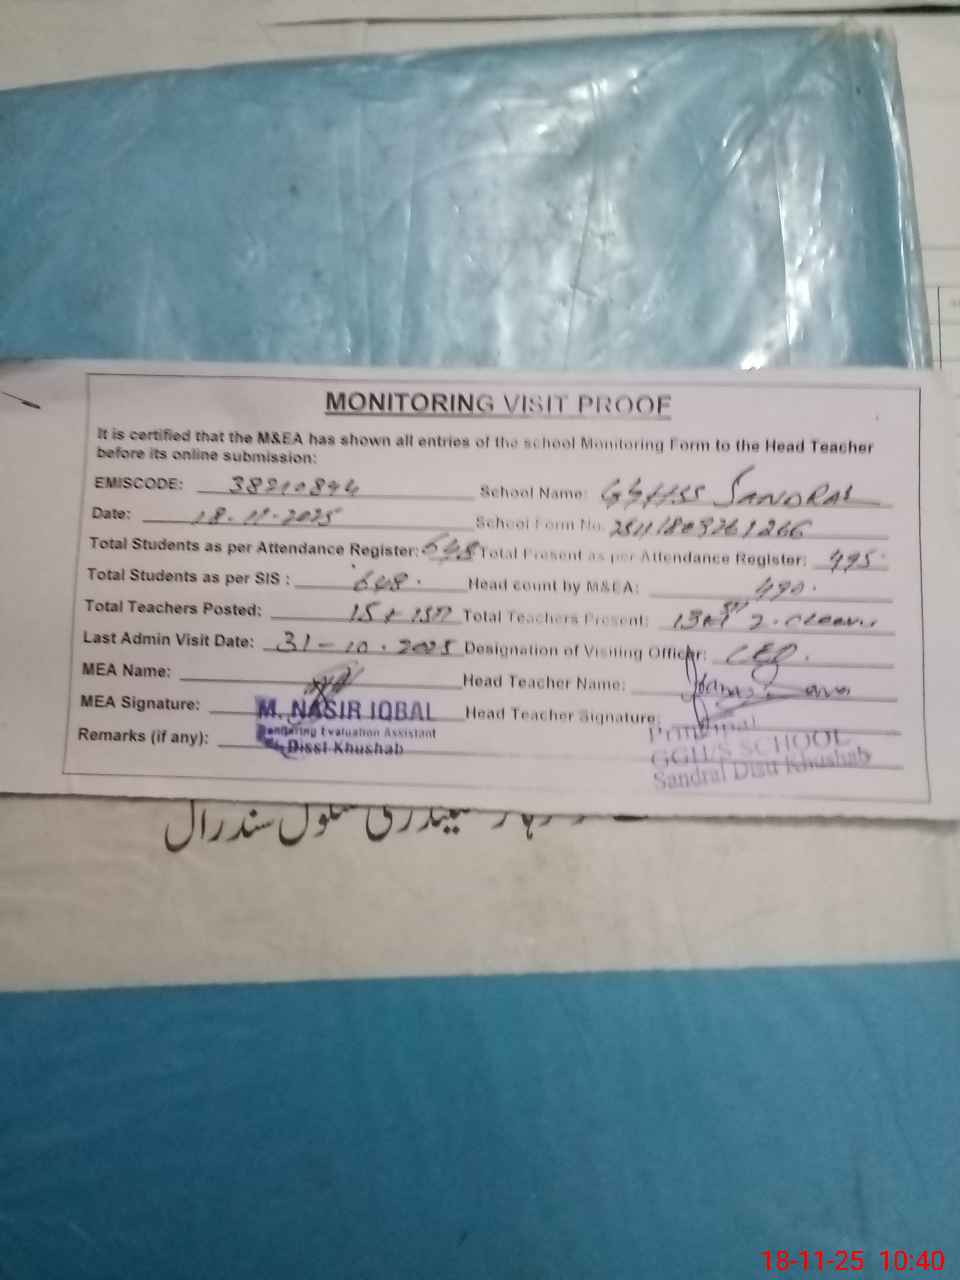 MONITORING VISIT PROOF
It is certified that the M&EA has shown all entries of the school Monitoring Form to the Head Teacher
before its online submission:
EMISCODE: 38210844 School Name: GGHSS SANDRAL
Date: 18-11-2025 School Form No. 2511180926 1266
Total Students as per Attendance Register: 648 Total Present as per Attendance Register: 495
Total Students as per SIS : 648. Head count by M&EA: 490.
Total Teachers Posted: 15 + Total Teachers Present:
Last Admin Visit Date: 31-10-2025 Designation of Visiting Officer: CEO.
MEA Name: Head Teacher Name:
MEA Signature: M. NASIR IQBAL Head Teacher Signature:
Monitoring Evaluation Assistant Principal
Remarks (if any): Disst Khushab GGH/S SCHOOL
Sandral Distt Khushab
سکول سندرال
18-11-25 10:40